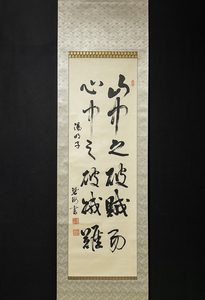 山中之破賊易
心中之破賊難
陽明子
書